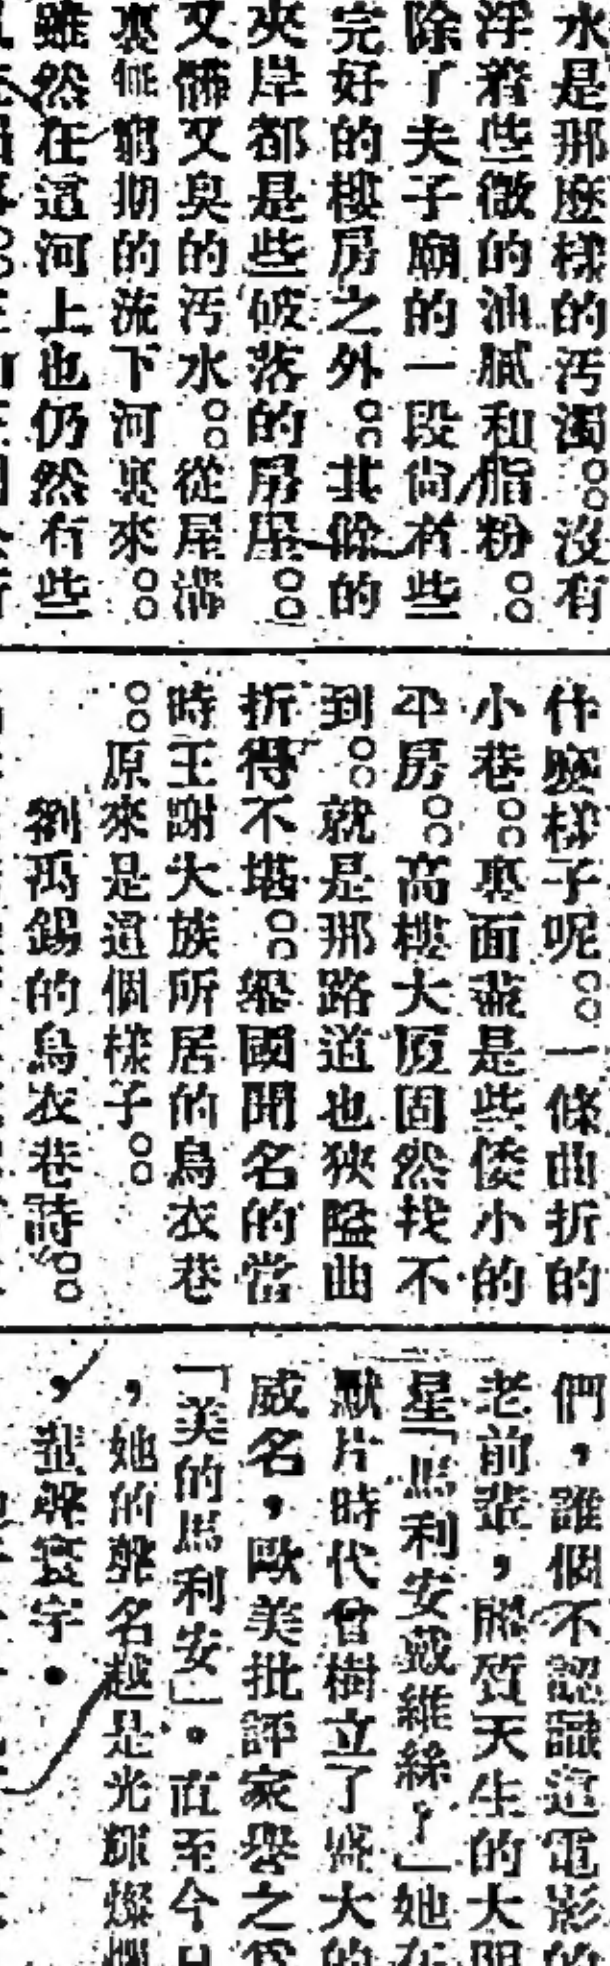 水是那麼樣的污濁。。沒有
浮着些微的油膩和脂粉。。
除了夫子廟的一段尙有些
完好的樓房之外。。其餘的
夾岸都是些破落的房屋。。
又髒又臭的污水。。從屋溝
裏無窮期的流下河裏來。。
雖然在這河上也仍然有些
什麼樣子呢。。一條曲折的
小巷。。裏面盡是些倭小的
平房。。高樓大厦固然找不
到。。就是那路道也狹隘曲
折得不堪。。舉國聞名的當
時王謝大族所居的烏衣巷
。。原來是這個樣子。。
劉禹錫的烏衣巷詩。。
們，誰個不認識這電影的
老前輩，麗質天生的大明
星「馬利安戴維絲了」她在
默片時代曾樹立了盛大的
威名，歐美批評家譽之爲
「美的馬利安」。直至今日
，她的聲名越是光輝燦爛
，蜚聲寰宇。